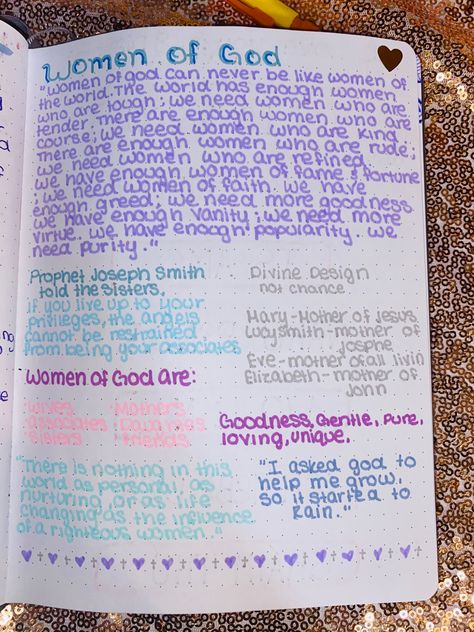 Women of God
"Women of god can never be like women of
the world. The world has enough women
who are tough; we need women who are
tender. There are enough women who are
course; we need women who are kind.
There are enough women who are rude;
we need women who are refined.
We have enough women of fame & fortune
; we need women of faith. We have
enough greed; we need more goodness.
We have enough vanity; we need more
virtue. We have enough popularity. We
need purity."
Prophet Joseph Smith
told the sisters,
if you live up to your
privileges, the angels
cannot be restrained
from being your associates
Divine Design
not chance
Mary-Mother of Jesus
Lucysmith-mother of
Josphe
Eve-mother of all livin
Elizabeth-mother of
John
Women of God are:
Wives Mothers
Associates Daughters
Sisters Friends
Goodness, Gentle, pure,
loving, unique.
"There is nothing in this
world as personal, as
nurturing, or as life
changing as the influence
of a righteous women."
"I asked god to
help me grow,
so it started to
Rain."